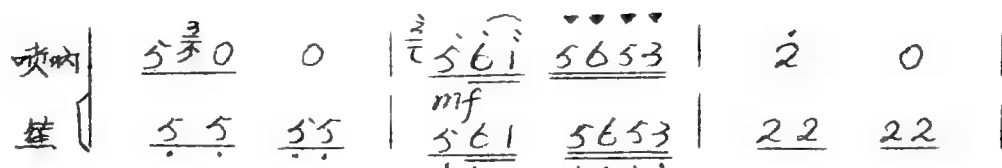 唢呐 5 3/5 0 0 | 5 6 1 5 6 5 3 | 2 0 |
mf
笙 5 5 5 5 | 5 6 1 5 6 5 3 | 2 2 2 2 |